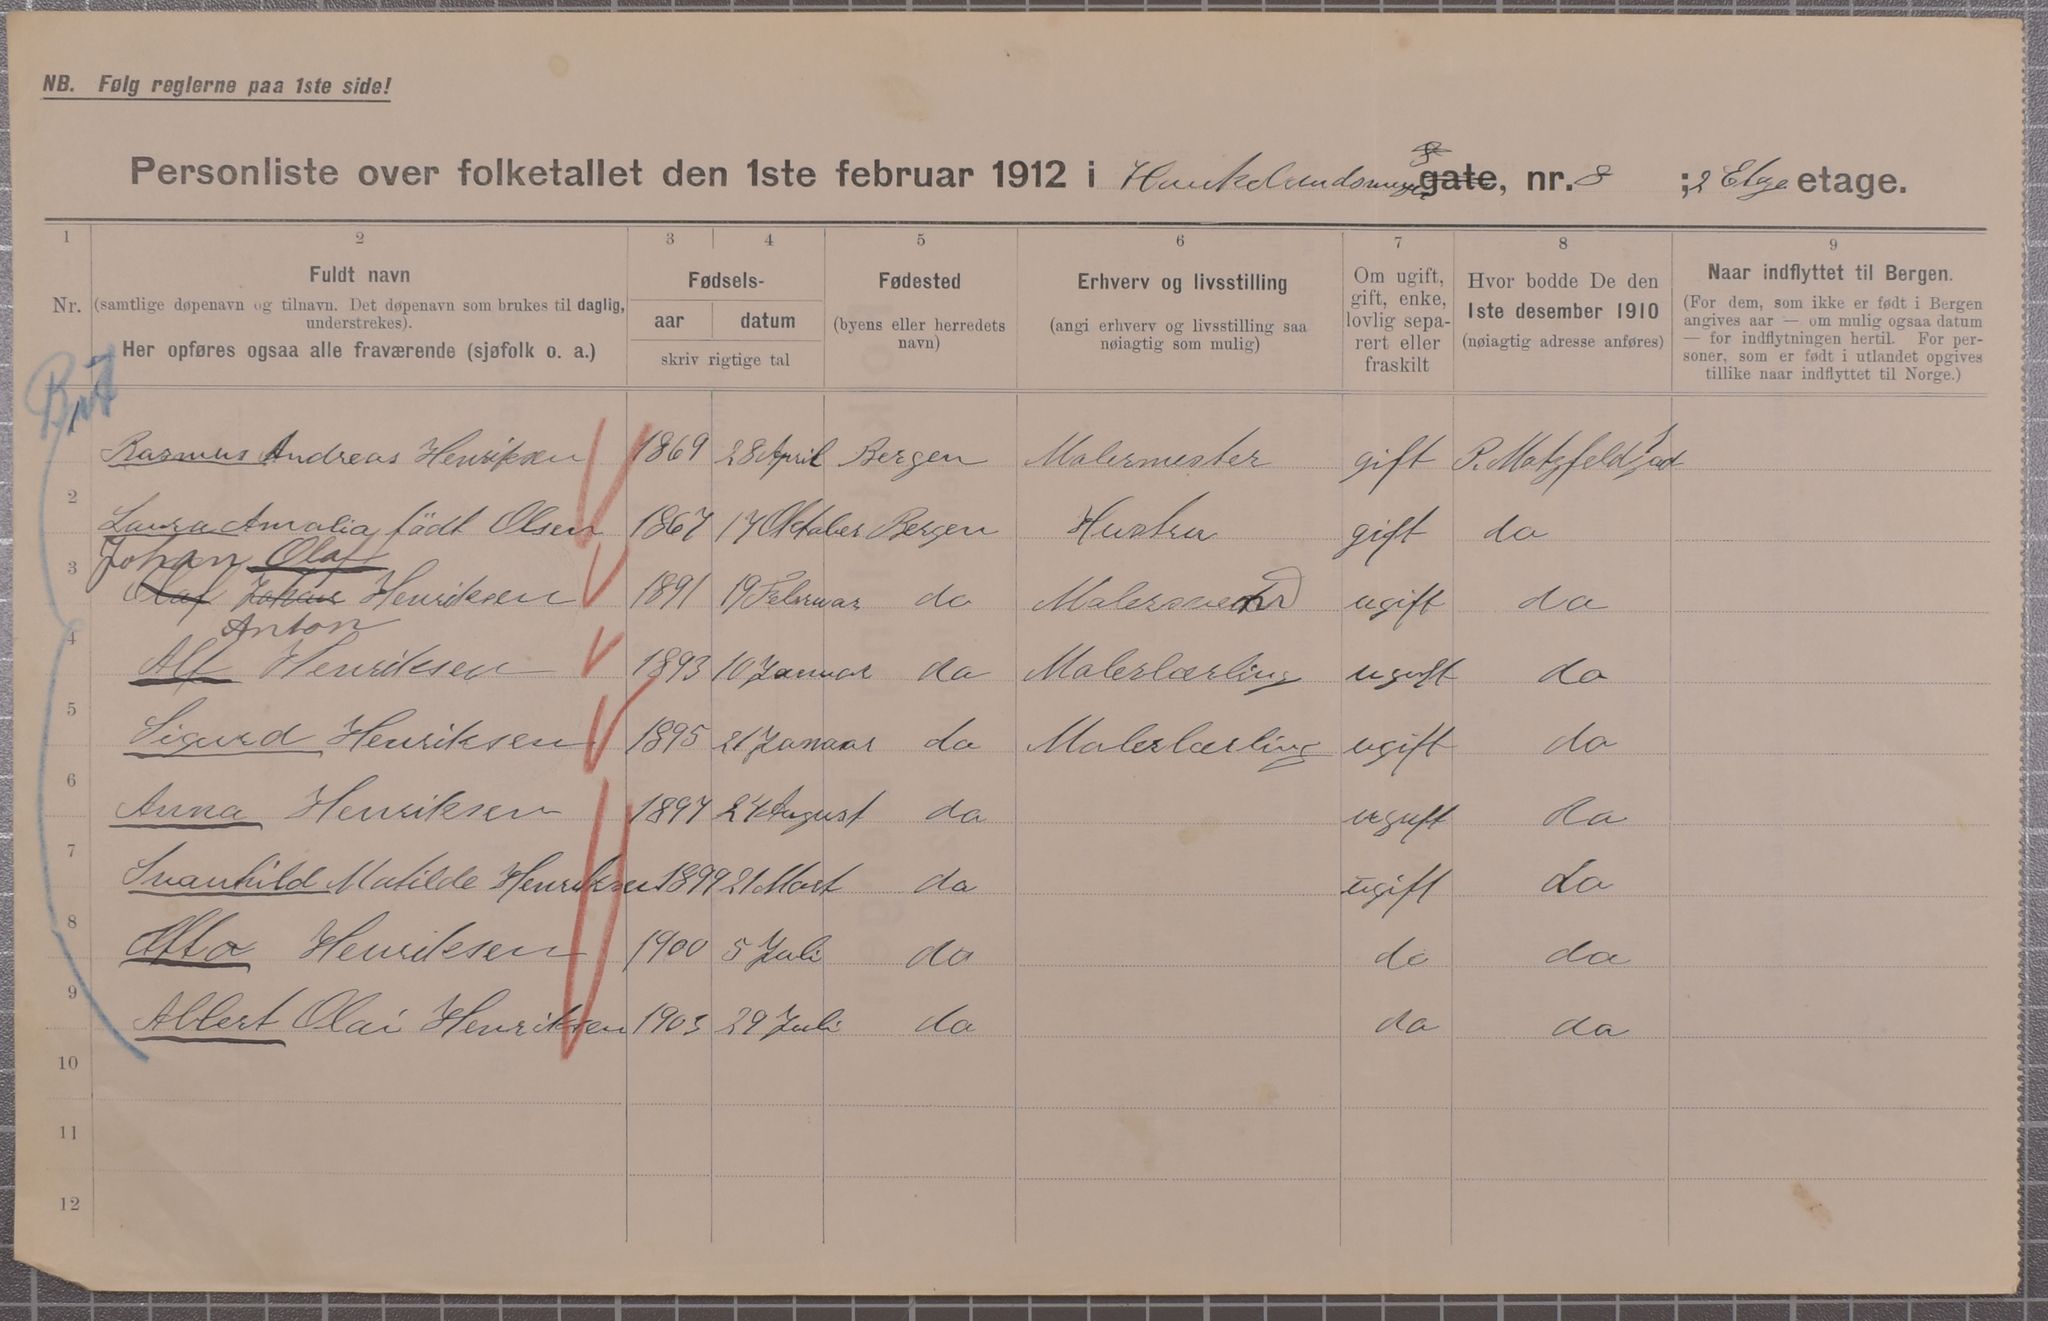 NB. Følg reglerne paa 1ste side!
Personliste over folketallet den 1ste februar 1912 i Haukelandsveien gate, nr. 8 ; 2 Etge etage.
1 2 3 4 5 6 7 8 9
Nr.
Fuldt navn
(samtlige døpenavn og tilnavn. Det døpenavn som brukes til daglig, understrekes).
Her opføres ogsaa alle fraværende (sjøfolk o. a.)
Fødsels-
aar datum
skriv rigtige tal
Fødested
(byens eller herredets navn)
Erhverv og livsstilling
(angi erhverv og livsstilling saa nøiagtig som mulig)
Om ugift, gift, enke, lovlig sepa-rert eller fraskilt
Hvor bodde De den
1ste desember 1910
(nøiagtig adresse anføres)
Naar indflyttet til Bergen.
(For dem, som ikke er født i Bergen
angives aar — om mulig ogsaa datum
— for indflytningen hertil. For per-
soner, som er født i utlandet opgives
tillike naar indflyttet til Norge.)
Rasmus Andreas Henriksen 1869 28 April Bergen Malermester gift P. Motzfeldsgad
2 Laura Amalia födt Olsen 1867 17 Oktober Bergen Hustru gift do
Johan Olaf
3 Olaf Johan Henriksen 1891 19 Februar do Malersvend ugift do
Anton
4 Alf Henriksen 1893 10 Januar do Malerlærling ugift do
5 Sigurd Henriksen 1895 21 Januar do Malerlærling ugift do
6 Anna Henriksen 1897 24 August do ugift do
7 Svanhild Matilde Henriksen 1899 21 Mart do ugift do
8 Otto Henriksen 1900 5 Juli do do do
9 Albert Olai Henriksen 1903 29 Juli do do do
10
11
12